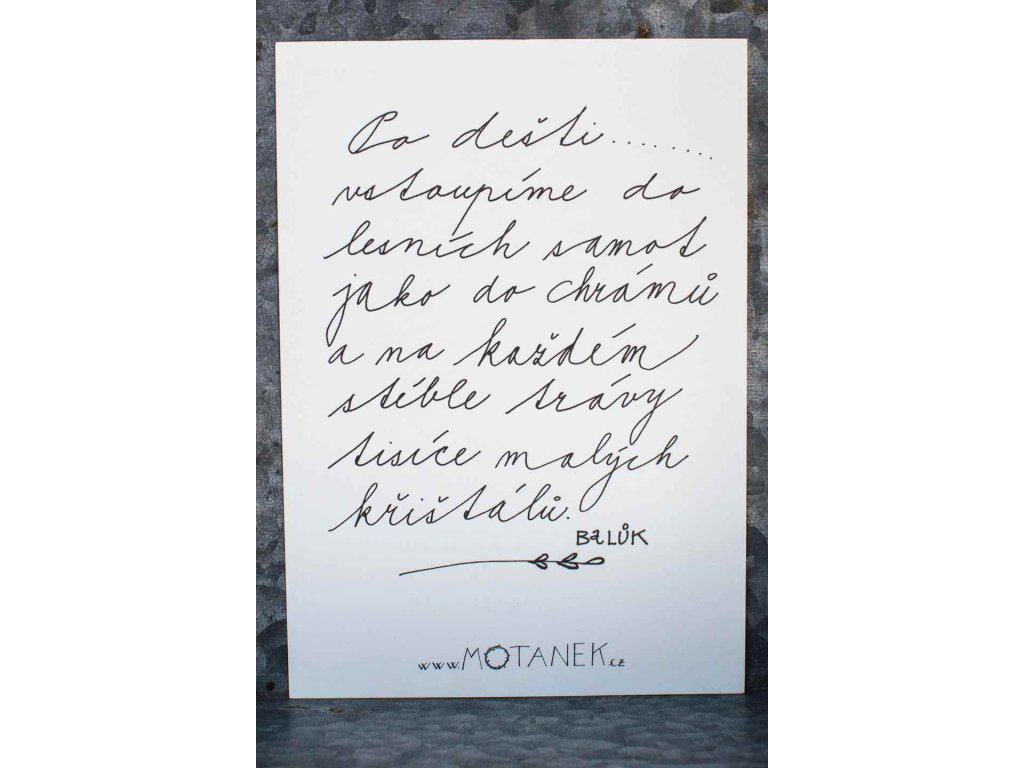 Po dešti........
vstoupíme do
lesních samot
jako do chrámů
a na každém
stéble trávy
tisíce malých
křišťálů.
BALŮK
www.MOTANEK.cz